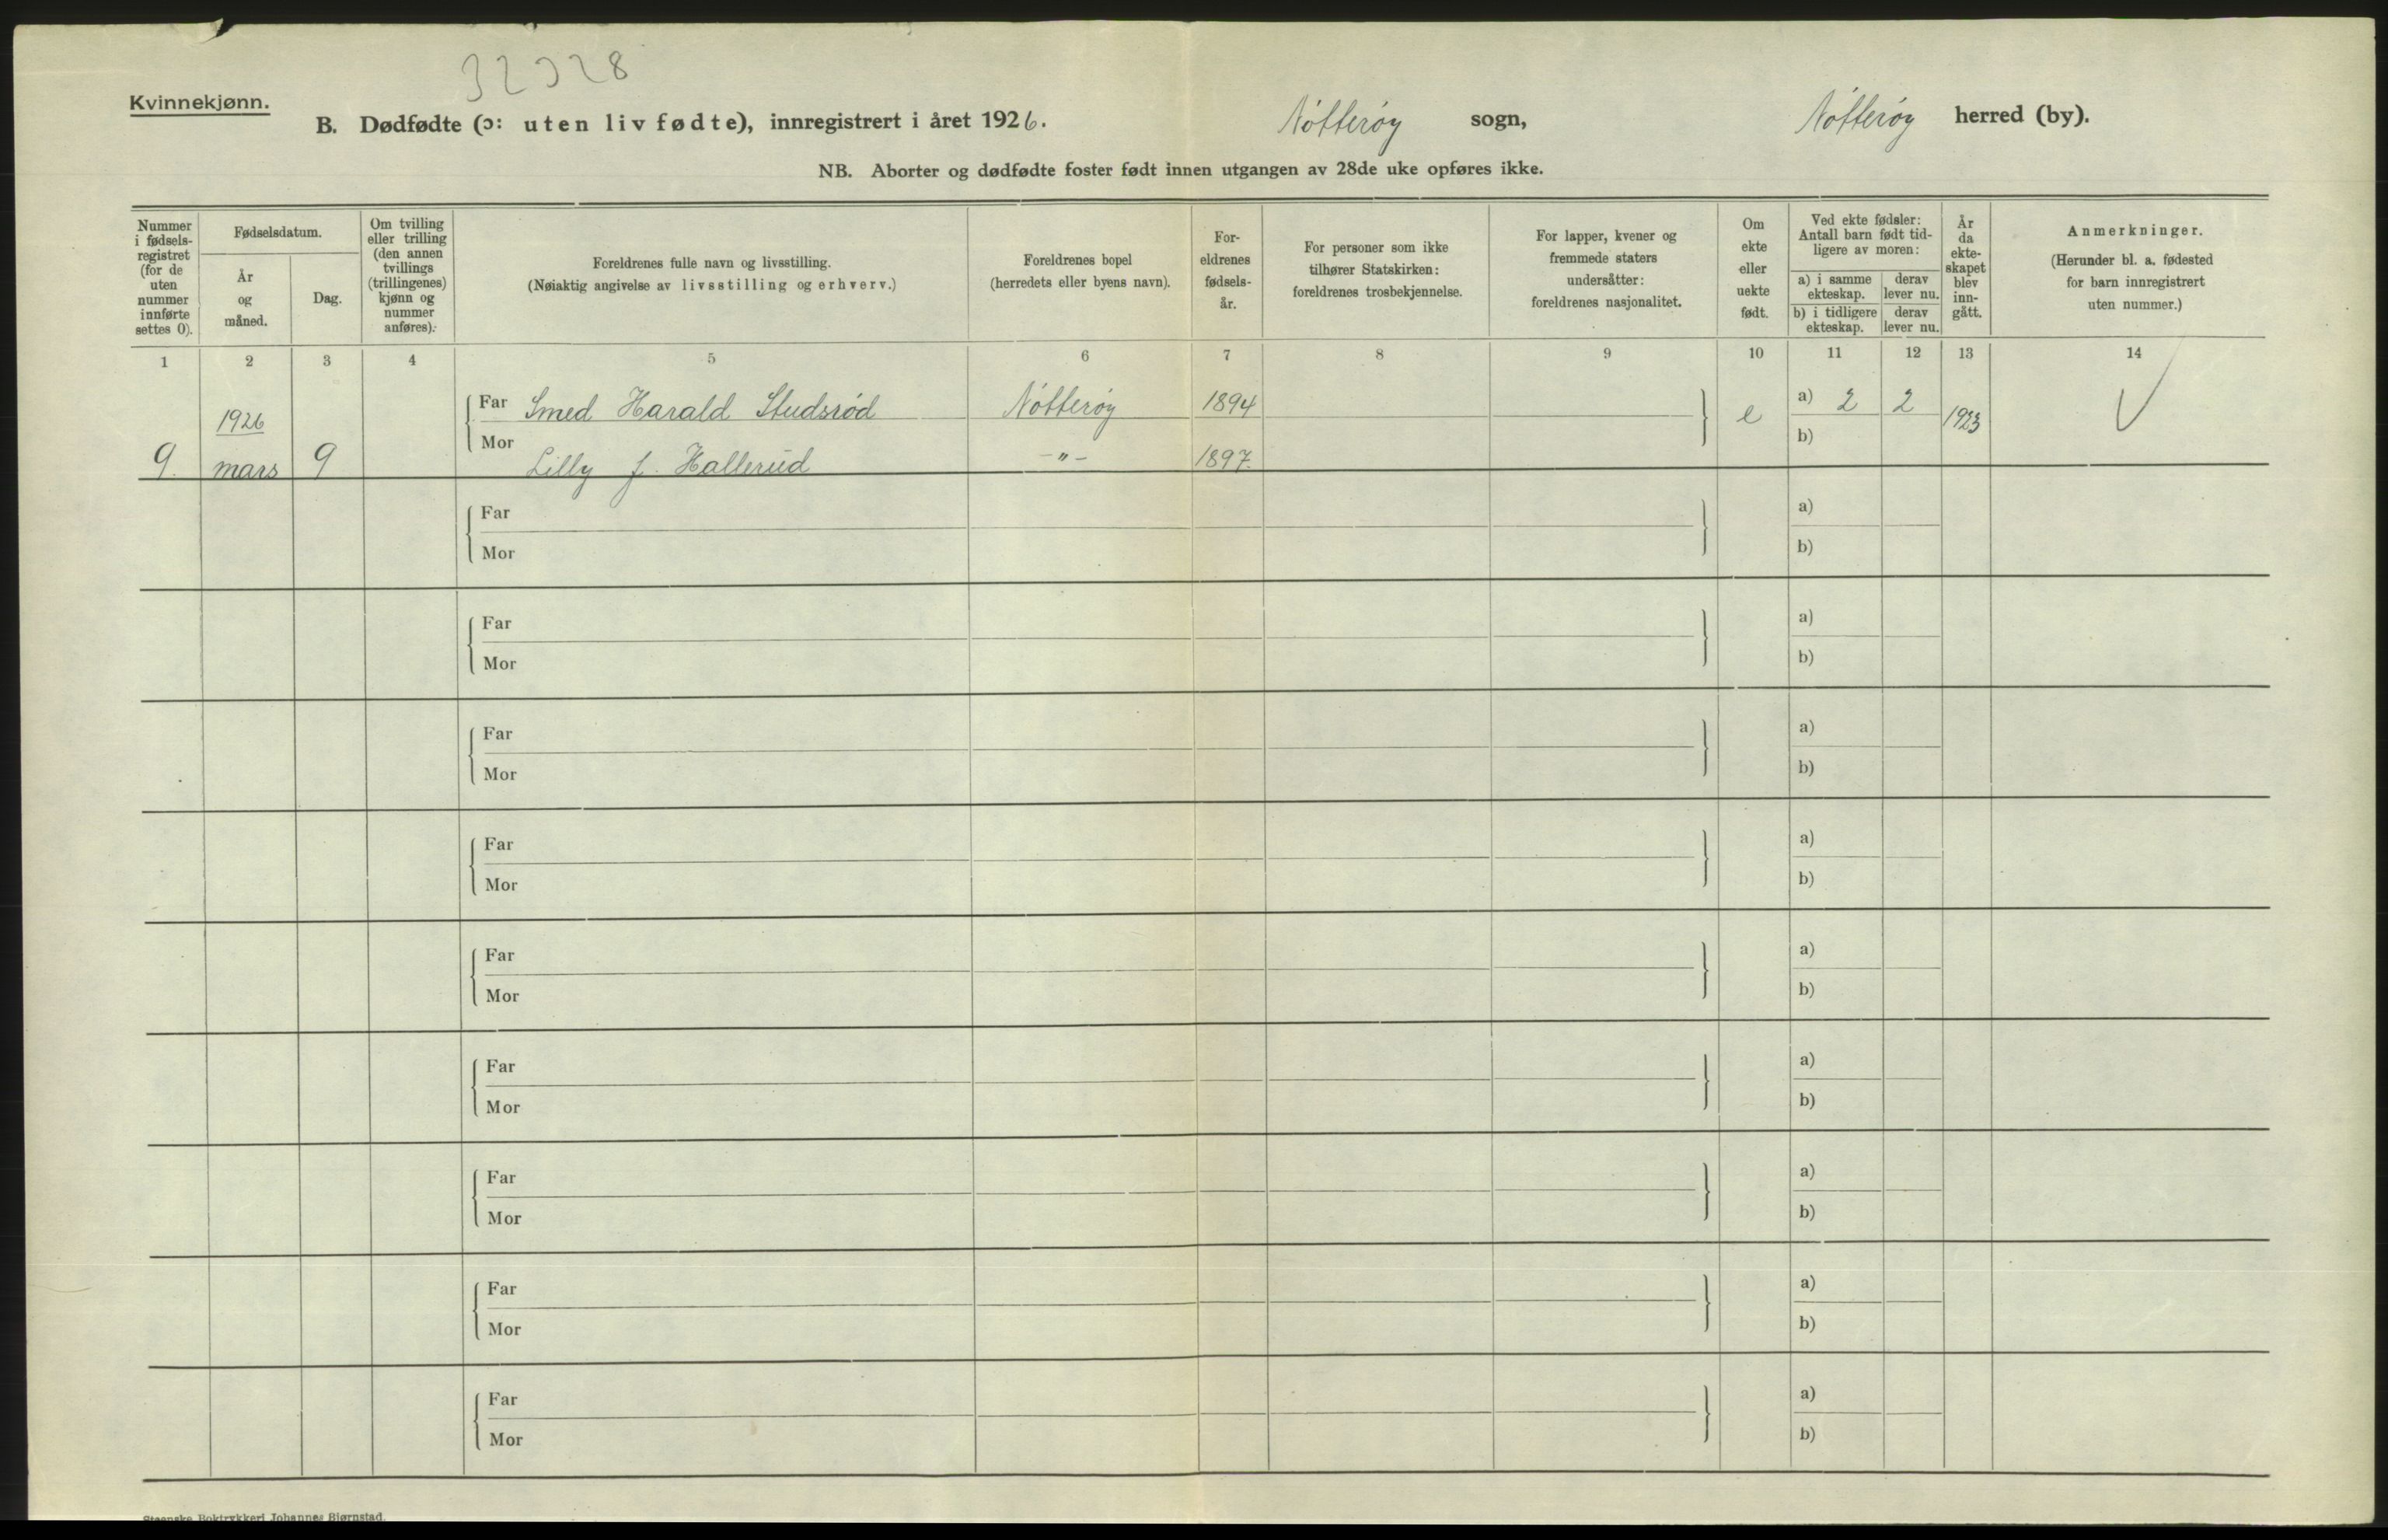 32328
Kvinnekjønn.
B. Dødfødte (ɔ: uten liv fødte), innregistrert i året 1926. Nøtterøy sogn, Nøtterøy herred (by).
NB. Aborter og dødfødte foster født innen utgangen av 28de uke opføres ikke.
Nummer i fødsels- registret (for de uten nummer innførte settes 0).
Fødselsdatum.
År og måned.
Dag.
Om tvilling eller trilling (den annen tvillings (trillingenes) kjønn og nummer anføres).
Foreldrenes fulle navn og livsstilling.
(Nøiaktig angivelse av livsstilling og erhverv.)
Foreldrenes bopel
(herredets eller byens navn).
For- eldrenes fødsels- år.
For personer som ikke tilhører Statskirken: foreldrenes trosbekjennelse.
For lapper, kvener og fremmede staters undersåtter: foreldrenes nasjonalitet.
Om ekte eller uekte født.
Ved ekte fødsler: Antall barn født tid- ligere av moren:
a) i samme ekteskap.
derav lever nu.
b) i tidligere ekteskap.
derav lever nu.
År da ekte- skapet blev inn- gått.
Anmerkninger.
(Herunder bl. a. fødested for barn innregistrert uten nummer.)
1 2 3 4 5 6 7 8 9 10 11 12 13 14
1926 Far Smed Harald Studsrød Nøtterøy 1894 e a) 2 2 1923
9. mars 9 Mor Lilly f. Hallerud -"- 1897. b)
Far a)
Mor b)
Far a)
Mor b)
Far a)
Mor b)
Far a)
Mor b)
Far a)
Mor b)
Far a)
Mor b)
Far a)
Mor b)
Far a)
Mor b)
Far a)
Mor b)
Steenske Boktrykkeri Johannes Bjørnstad.